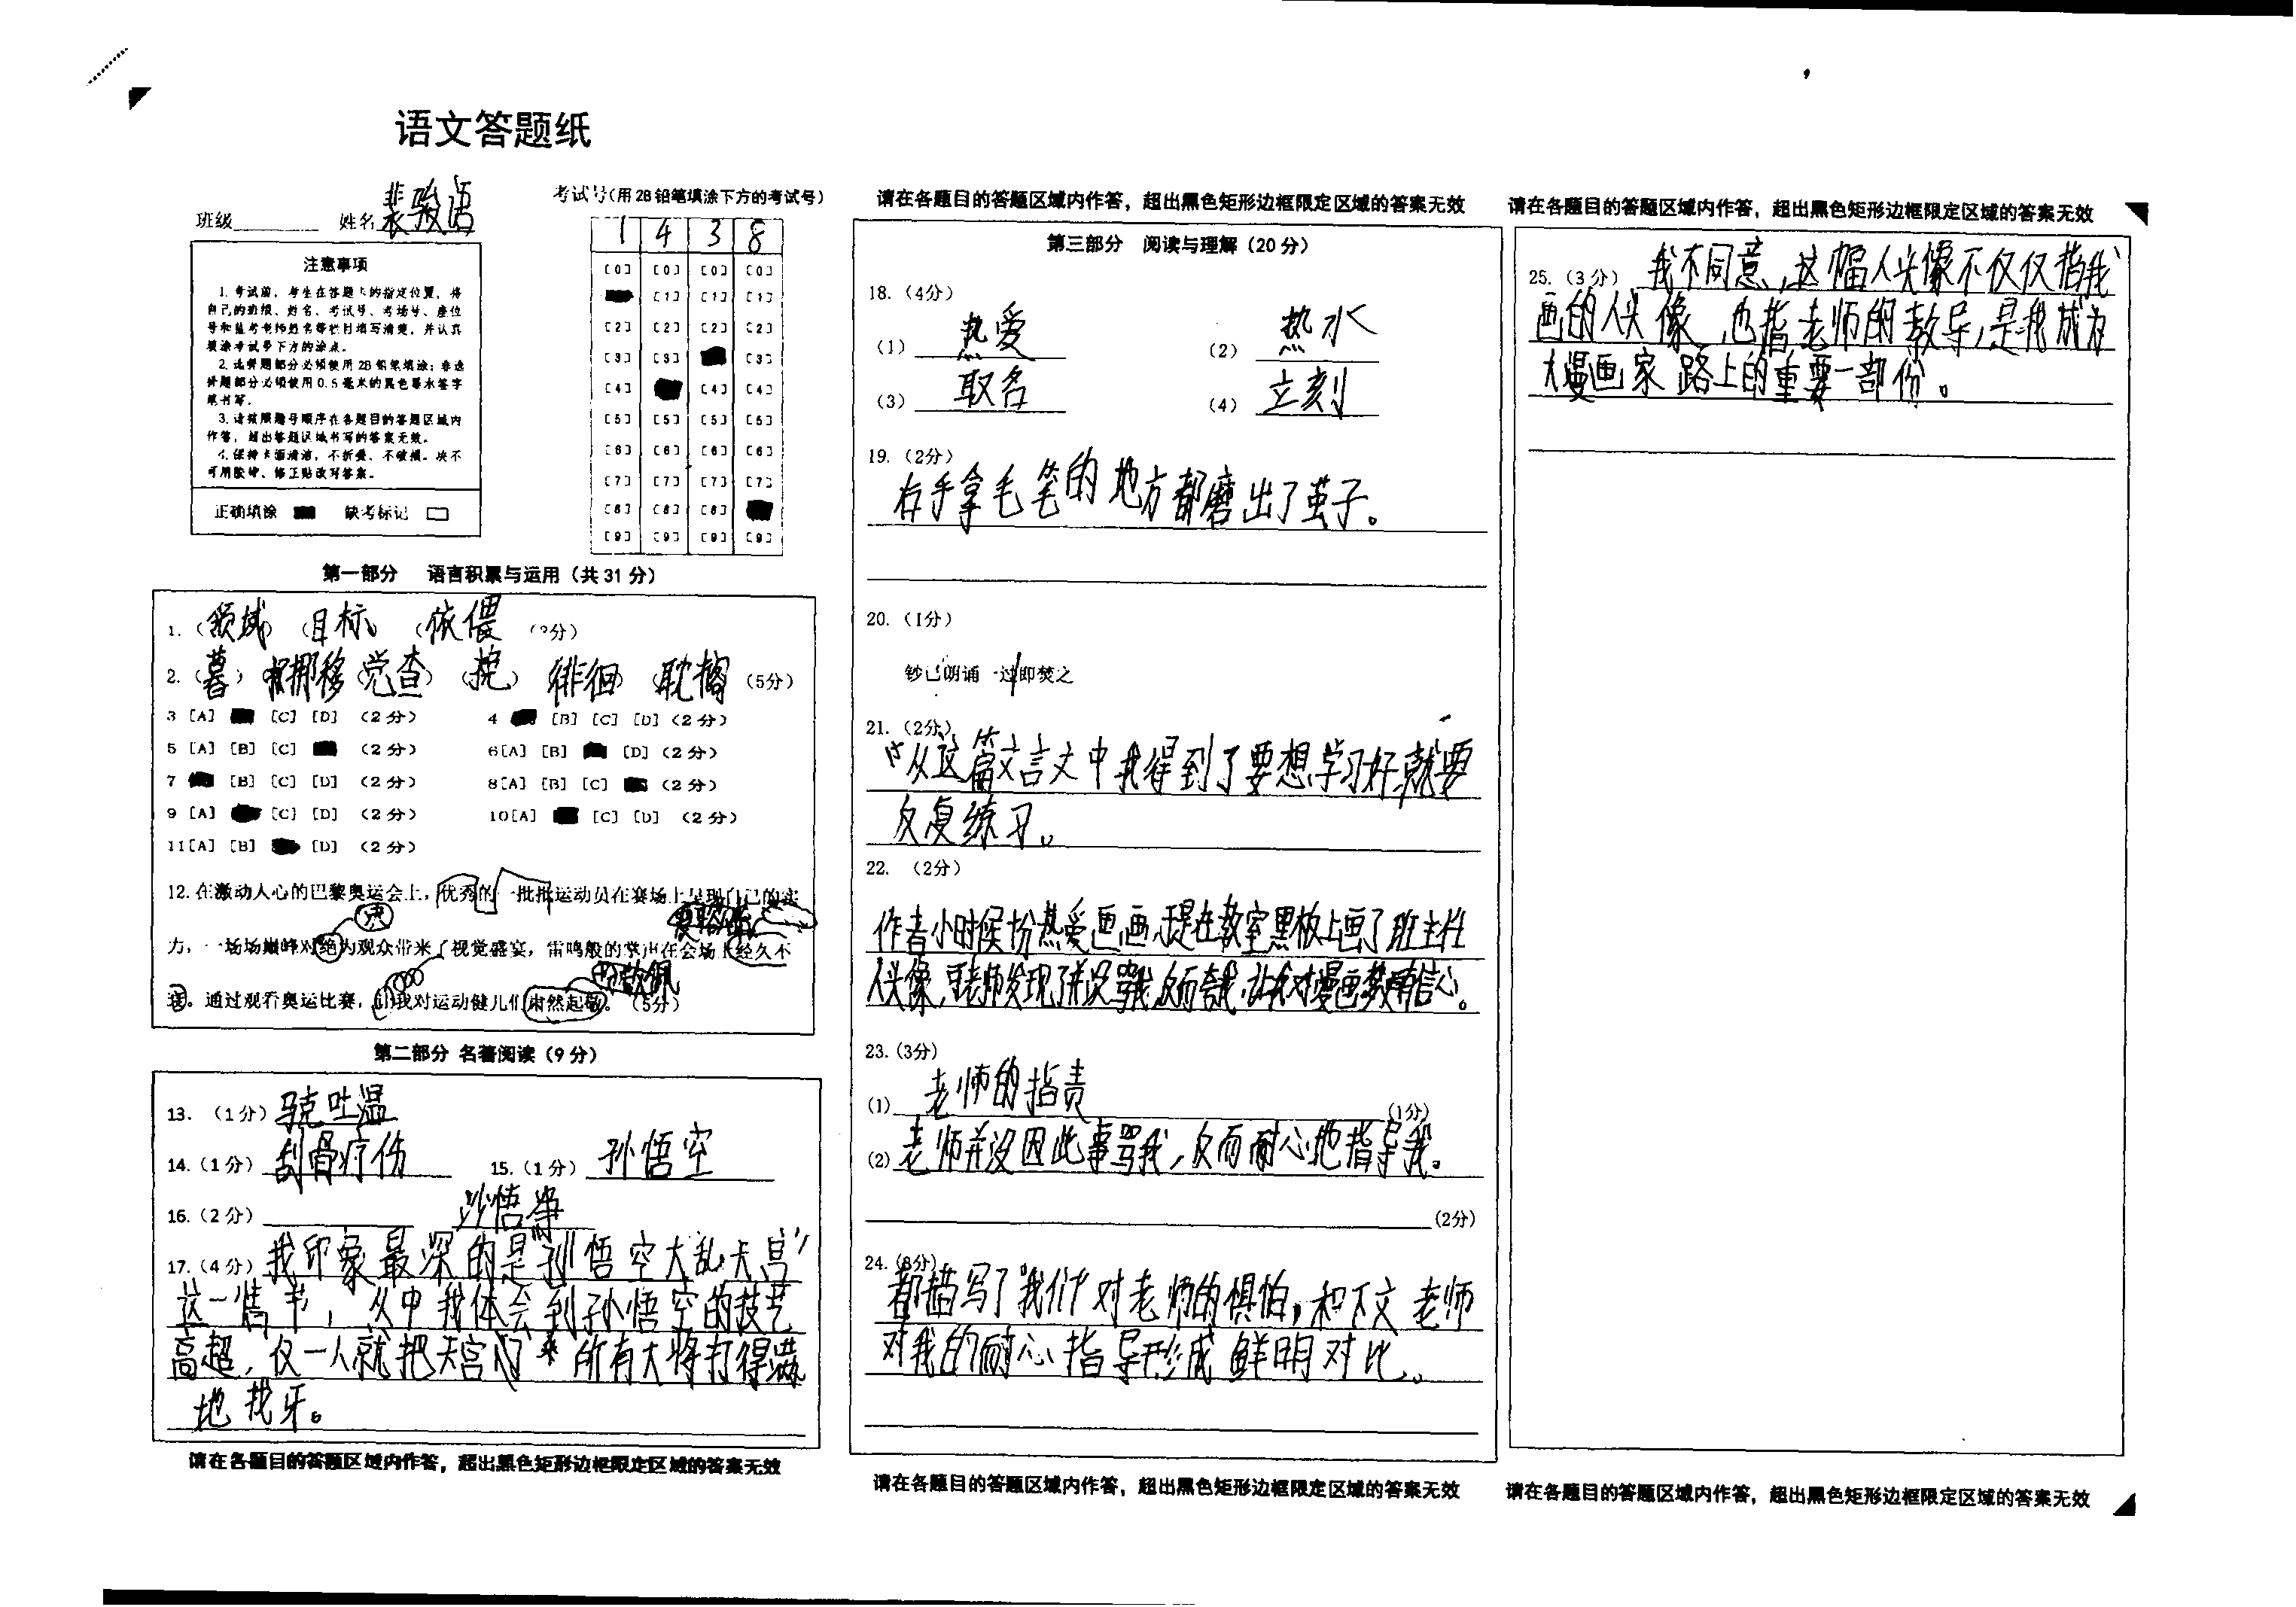 语文答题纸
班级 姓名 裴骏语
考试号(用2B铅笔填涂下方的考试号)
1 4 3 8
[0] [0] [0] [0]
[1] [1] [1]
[2] [2] [2] [2]
[3] [3] [3]
[4] [4] [4]
[5] [5] [5] [5]
[6] [6] [6] [6]
[7] [7] [7] [7]
[8] [8] [8]
[9] [9] [9] [9]
注意事项
1.考试前,考生在答题卡的指定位置,将
自己的班级、姓名、考试号、考场号、座位
号和监考老师姓名等栏目填写清楚,并认真
填涂考试号下方的涂点。
2.选择题部分必须使用2B铅笔填涂;非选
择题部分必须使用0.5毫米的黑色墨水签字
笔书写。
3.请按照题号顺序在各题目的答题区域内
作答,超出答题区域书写的答案无效。
4.保持卡面清洁,不折叠、不破损。决不
可用胶带、修正贴改写答案。
正确填涂 缺考标记
第一部分 语言积累与运用(共31分)
1.(领域)(目标)(依偎)
2.(暮)(挪移)(党查)( )(徘徊)(耽搁)(5分)
3 [A] [C] [D] (2分) 4 [B] [C] [D](2分)
5 [A] [B] [C] (2分) 6[A] [B] [D](2分)
7 [B] [C] [D] (2分) 8[A] [B] [C] (2分)
9 [A] [C] [D] (2分) 10[A] [C] [D] (2分)
11[A] [B] [D] (2分)
12.在激动人心的巴黎奥运会上,优秀的一批批运动员在赛场上呈现自己的实
力,一场场巅峰对绝为观众带来了视觉盛宴,雷鸣般的掌声在会场上经久不
决
。通过观看奥运比赛,让我对运动健儿们肃然起敬。(5分)
钦佩
第二部分 名著阅读(9分)
13.(1分)马克吐温
14.(1分)刮骨疗伤 15.(1分)孙悟空
16.(2分) 沙悟净
17.(4分)我印象最深的是“孙悟空大乱天宫”
这一情节,从中我体会到孙悟空的技艺
高超,仅一人就把天宫 所有大将打得满
地找牙。
请在各题目的答题区域内作答,超出黑色矩形边框限定区域的答案无效
请在各题目的答题区域内作答,超出黑色矩形边框限定区域的答案无效
第三部分 阅读与理解(20分)
18.(4分)
(1)热爱 (2)热水
(3)取名 (4)立刻
19.(2分)
右手拿毛笔的地方都磨出了茧子。
20.(1分)
钞已朗诵一过即焚之
21.(2分)
从这篇文言文中我得到了要想学习好,就要
反复练习。
22.(2分)
作者小时候 热爱画画,于是在教室黑板上画了班主任
人头像,可老师发现了并没骂我,反而夸我,让我对漫画 有信心。
23.(3分)
(1)老师的指责(1分)
(2)老师并没因此事骂我,反而耐心地指导我。
(2分)
24.(8分)
都描写了“我们”对老师的惧怕,和下文老师
对我的耐心指导形成鲜明对比。
请在各题目的答题区域内作答,超出黑色矩形边框限定区域的答案无效
请在各题目的答题区域内作答,超出黑色矩形边框限定区域的答案无效
25.(3分)我不同意,这幅人头像不仅仅指我
画的人头像,也指老师的教导,是我成为
大漫画家路上的重要一部份。
请在各题目的答题区域内作答,超出黑色矩形边框限定区域的答案无效